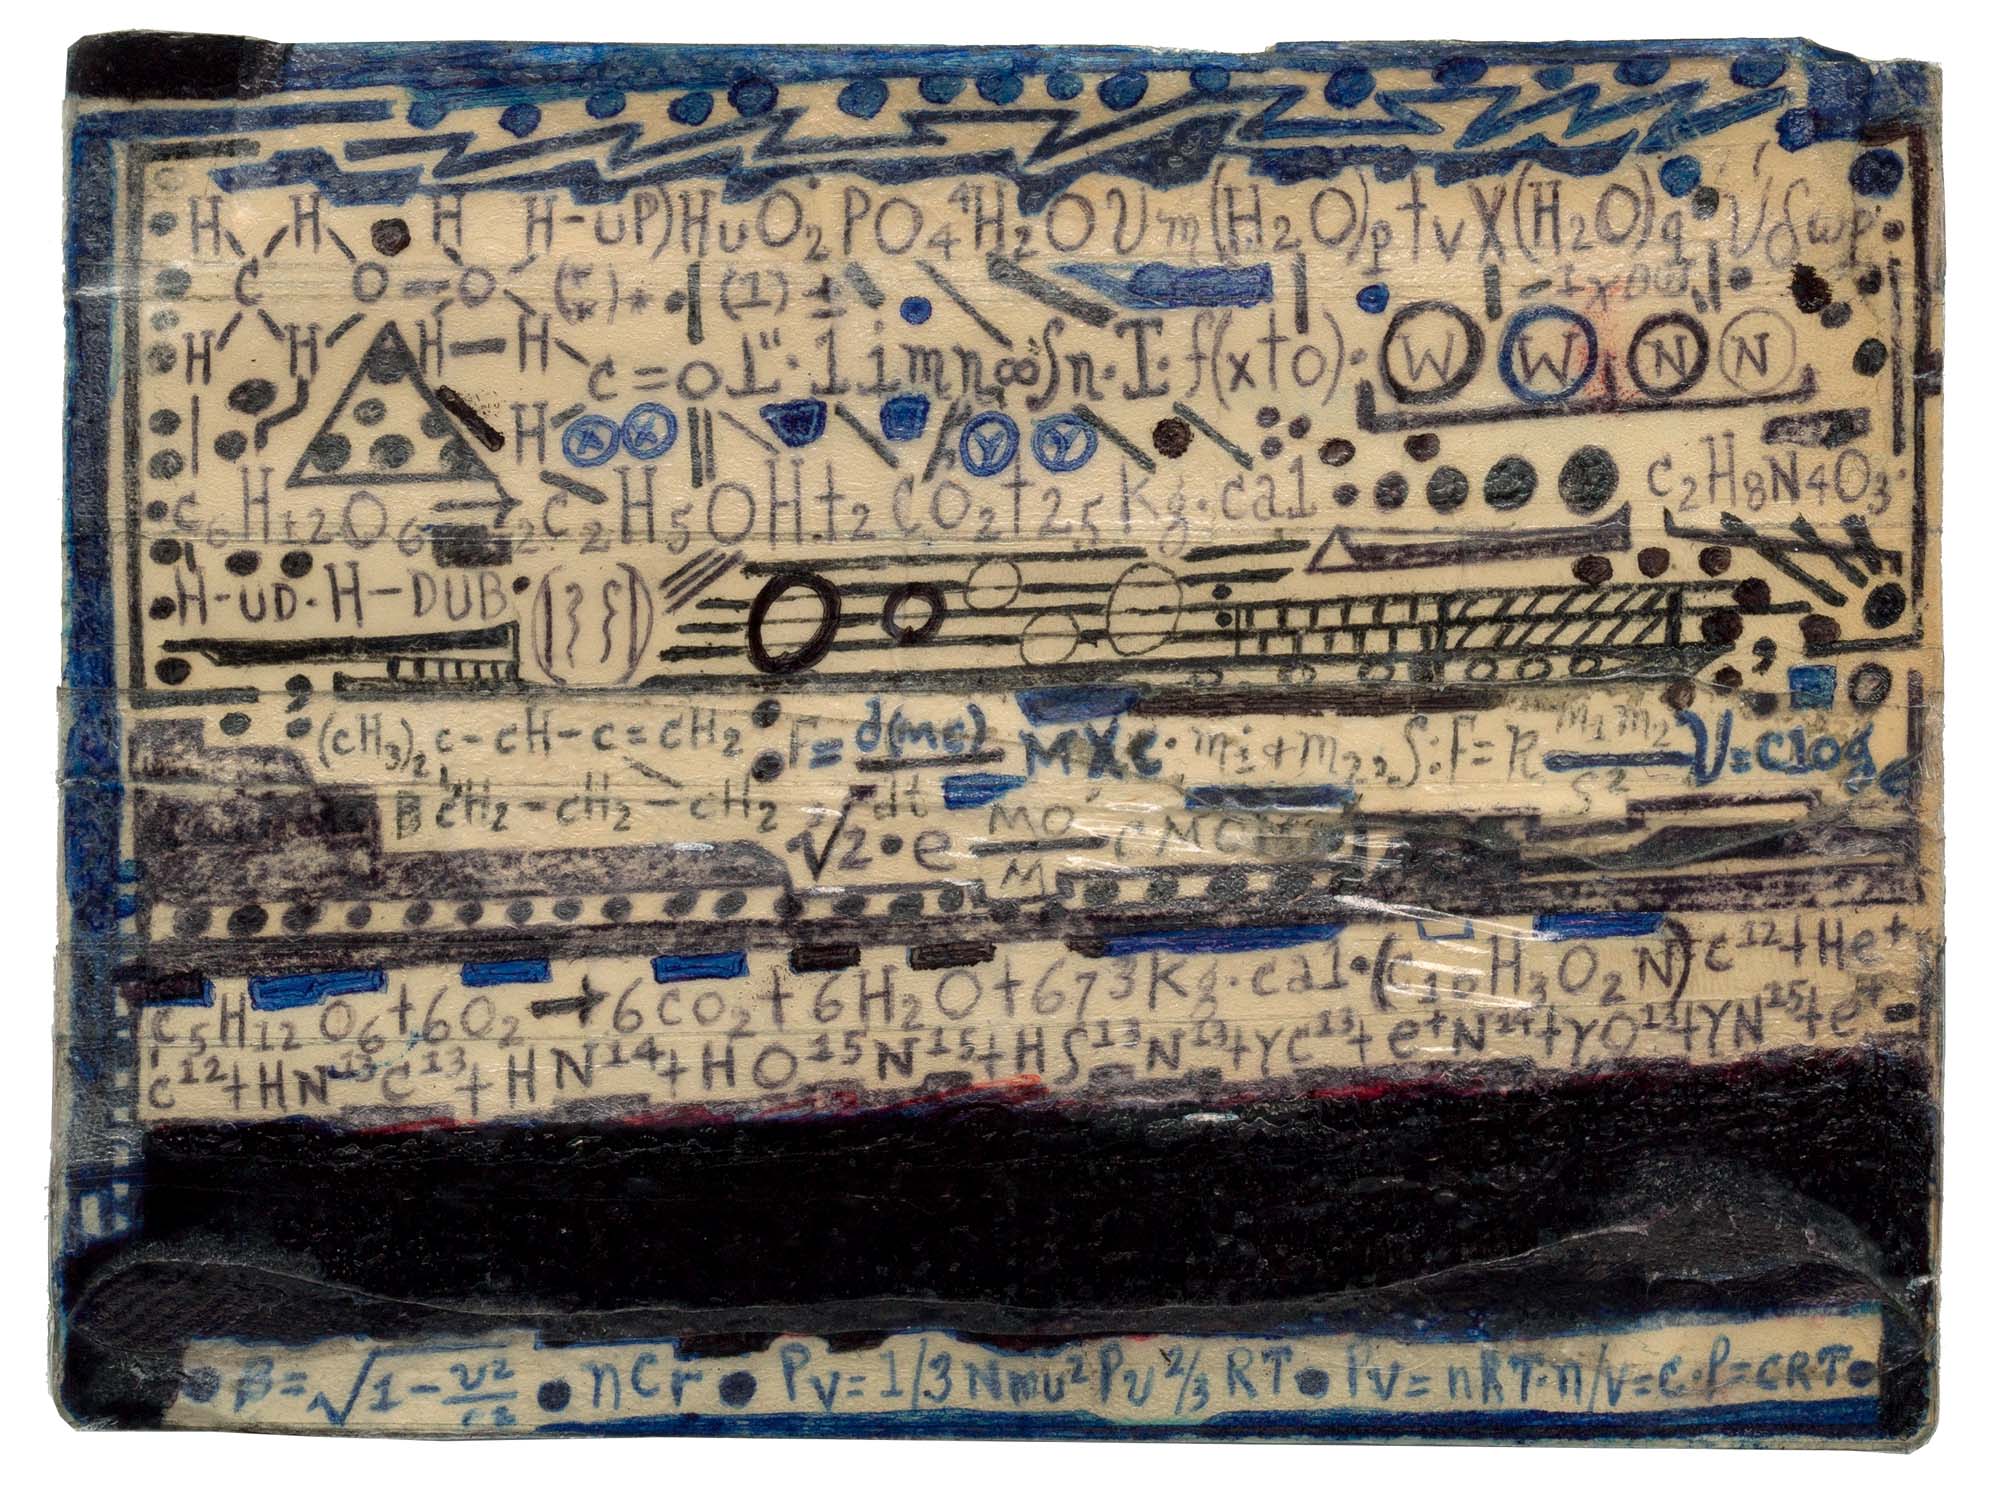 H H H H-uP)HuO₂PO₄⁴H₂OVm(H₂O)p†vX(H₂O)q
C O O (1)
H H H-H c=o 1"·limn∞∫n·I·f(x†o)· W W N N
H X X Y Y
c₆H₁₂O₆ 2c₂H₅OH†₂CO₂†25Kg·cal c₂H₈N4O₃
H-uD·H-DUB
(cH₃)₂c-cH-c=cH₂ F=d(mc)/dt MXc·m₁+m₂₂S:F=R m₁m₂/S² V=clog
B cH₂-cH₂-cH₂ √2·e MO/M cMcM
c₅H₁₂O₆+6O₂→6cO₂+6H₂O+673Kg·cal·(c₁₀H₃O₂N)c¹²+He⁺
c¹²+HN¹³c¹³+HN¹⁴+HO¹⁵N¹⁵+HS¹³N¹³+γC¹³+e⁺N¹⁴+γO¹⁴+γN¹⁵+e⁺
B=√1-v²/c² ● nCr ● Pv=1/3Nmu²Pv²/₃RT●Pv=nRT·n/v=c·P=cRT●